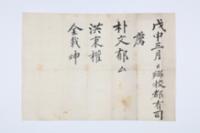 戊申三月日鄕校都有司
薦
朴文郁
洪東權
金載坤